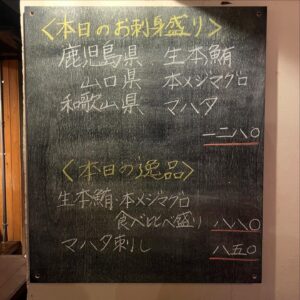 <本日のお刺身盛り>
鹿児島県 生本鮪
山口県 本メジマグロ
和歌山県 マハタ
一二八〇
<本日の逸品>
生本鮪・本メジマグロ
食べ比べ盛り 八八〇
マハタ刺し 八五〇